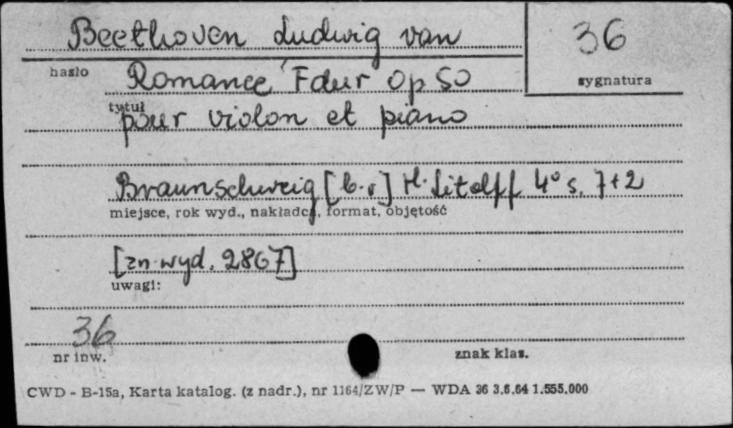 Beethoven Ludwig van
36
hasło
Romance Fdur Op 50
sygnatura
tytuł
pour violon et piano
Braunschweig [b.r] H. Litolff 4° s. 7+2
miejsce, rok wyd., nakładca, format, objętość
[zn. wyd. 2867]
uwagi:
36
nr inw.
znak klas.
CWD - B-15a, Karta katalog. (z nadr.), nr 1164/ZW/P — WDA 36 3.6.64 1.555.000